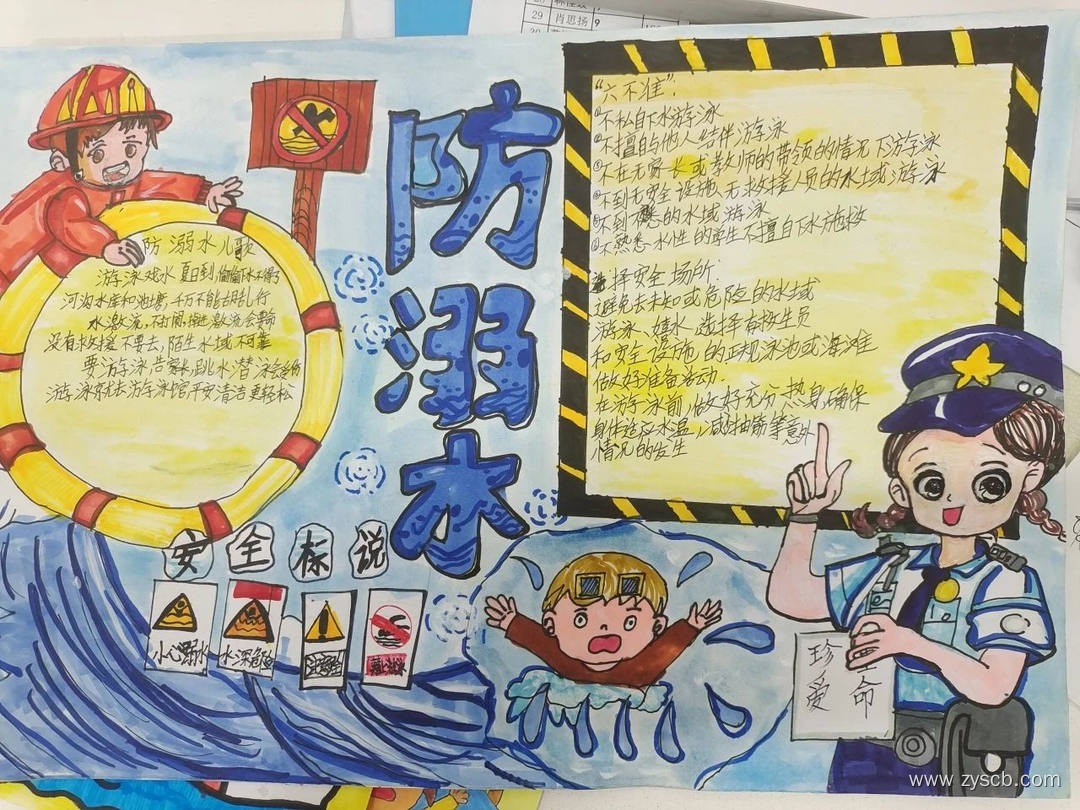 29 肖思扬 9
防溺水
防溺水儿歌
游泳戏水夏日到,偷偷下水不得了
河沟水库和池塘,千万不能胡乱行
水激流,不
没有救援不要去,陌生水域不可靠
要游泳告家长,跳水潜泳会受伤
游泳就去游泳馆平安清洁更轻松
安全标说
小心溺水
水深危险
"六不准":
①不私自下水游泳
②不擅自与他人结伴游泳
③不在无家长或教师的带领的情况下游泳
④不到无安全设施、无救援人员的水域游泳
⑤不到 的水域游泳
⑥不熟悉水性的学生不擅自下水施救
选择安全场所:
避免去未知或危险的水域
游泳、嬉水选择有救生员
和安全设施的正规泳池或海滩
做好准备活动:
在游泳前,做好充分热身,确保
身体适应水温,减少抽筋等意外
情况的发生
珍
爱 命
www.zyscb.com